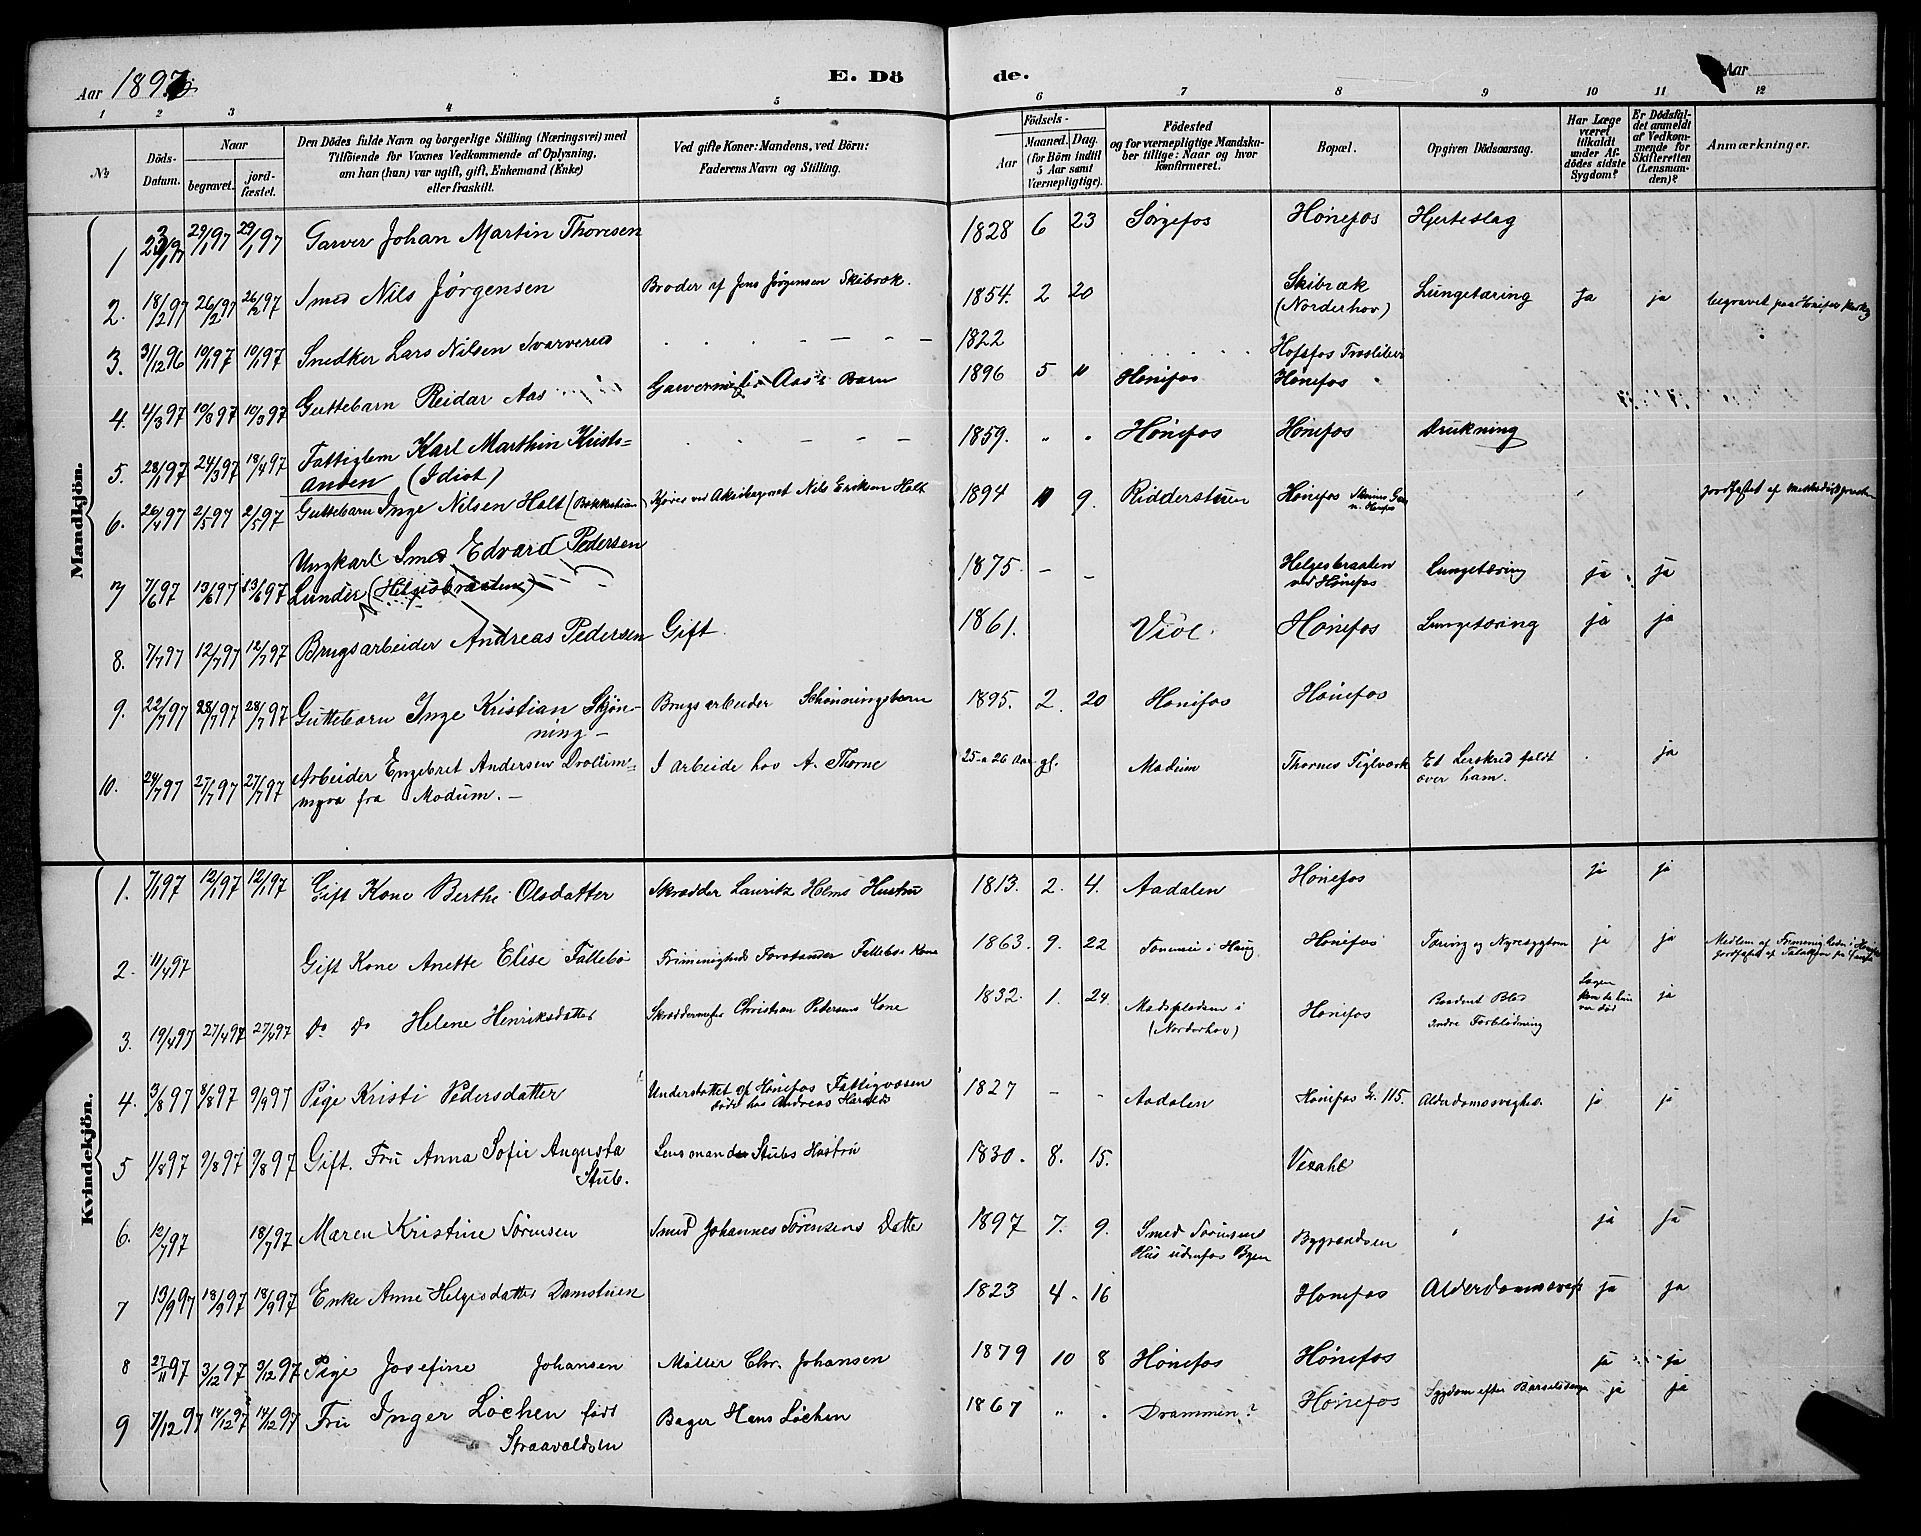 Aar 1897
E. Dö de.
Aar
1 2 3 4 5 6 7 8 9 10 11 12
№ Döds-Datum. Naar begravet. jordfæstet. Den Dödes fulde Navn og borgerlige Stilling (Næringsvei) med Tilföiende for Voxnes Vedkommende af Oplysning, om han (hun) var ugift, gift, Enkemand (Enke) eller fraskilt. Ved gifte Koner: Mandens, ved Börn: Faderens Navn og Stilling. Födsels- Aar Maaned. Dag. (for Börn indtil 5 Aar samt Værnepligtige). Födested og for værnepligtige Mandskaber tillige: Naar og hvor konfirmeret. Bopæl. Opgiven Dödsaarsag. Har Læge været tilkaldt under Afdödes sidste Sygdom? Er Dödsfaldet anmeldt af Vedkommende for Skifteretten (Lensmanden)? Anmærkninger.
Mandkjön.
1 23/1 97 29/1 97 29/1 97 Garver Johan Martin Thoresen 1828 6 23 Sørgefos Hönefos Hjerteslag
2. 18/2 97 26/2 97 26/2 97 Smed Nils Jørgensen Broder af Jens Jørgensen Skibræk. 1854. 2 20 Skibræk (Norderhov) Lungetæring Ja ja begravet paa Hönefos
3. 31/12 96 10/1 97 10/1 97 Snedker Lars Nilsen Svarverud 1822 Hofsfos Træsliberi
4. 4/3 97 10/3 97 10/3 97 Guttebarn Reidar Aas Aas's Barn 1896 5 11 Hönefos Hönefos
5. 28/1 97 24/3 97 18/4 97 Fattiglem Karl Marthin Krists-
anden (Idiot) 1859. Hönefos Hönefos Drukning
6. 26/4 97 2/5 97 2/5 97 Guttebarn Inge Nilsen Holt Nils Eriksen Holt 1894 11 9. Ridderstuen Hönefos jordfæstet af
7 7/6 97 13/6 97 13/6 97 Ungkarl Smed Edvard Pedersen
Lunder (Helgesbraaten) 1875 - - Helgesbraaten ved Hönefos Lungetæring ja ja
8. 7/7 97 12/7 97 12/7 97 Brugsarbeider Andreas Pedersen Gift. 1861. Viol. Hönefos Lungetæring ja ja
9. 22/7 97 28/7 97 28/7 97 Guttebarn Inge Kristian Skjön-
ning - Brugsarbeider Schönningsbarn 1895. 2. 20 Hönefos Hönefos
10. 24/7 97 27/7 97 27/7 97 Arbeider Engebret Andersen
myra fra Modum. - I arbeide hos A. Thorne 25 a 26 Aar gl. Modum Thornes Teglværk Et Lerskred faldt over ham. ja
Kvindekjön.
1. 7/1 97 12/1 97 12/1 97 Gift Kone Berthe Olsdatter Skrædder Lauritz Holms Hustru 1813. 2. 4. Aadalen Hönefos ja ja
2. 11/4 97 Gift Kone Anette Elise Fallebö Frimenigheds Forstander Fallebös Kone 1863. 9. 22 i Haug Hönefos Tæring og Nyresygdom ja ja Medlem af Frimenigheden i
3. 19/4 97 27/4 97 27/4 97 Do Do Helene Henriksdatter Skræddermester Christian Pedersens Kone 1832. 1. 24. i (Norderhov) Hönefos Indre Forblödning Lægen kom da hun var död ja
4. 3/8 97 8/8 97 9/9 97 Pige Kristi Pedersdatter Understöttet af Hönefos Fattigvæsen
död hos Andreas 1827 - - Aadalen Hönefos Gr. 115. Alderdomssvaghed. ja ja
5 1/8 97 9/8 97 9/8 97 Gift. Fru Anna Sofie Augusta
Stub. Lensmand Stubs Hustru 1830. 8. 15. Vesahl
6. 12/7 97 18/7 97 Maren Kristine Sörensen Smed Johannes Sörensens Datter 1897 7. 9. Smed Sörensens Hus udenfor Byen Bygrændsen ja ja
7 13/9 97 18/9 97 18/9 97 Enke Anne Helgesdatter Damstuen 1823 4 - 16 Hönefos Alderdomssvagh ja ja
8 27/11 97 3/12 97 3/12 97 Pige Josefine Johansen Möller Chr. Johansen 1879 10 8 Hönefos Hönefos ja ja
9 7/12 97 14/12 97 14/12 97 Fru Inger Löchen födt
Straavaldsen Bager Hans Löchen 1867 Drammen? Hönefos Sygdom efter ja ja